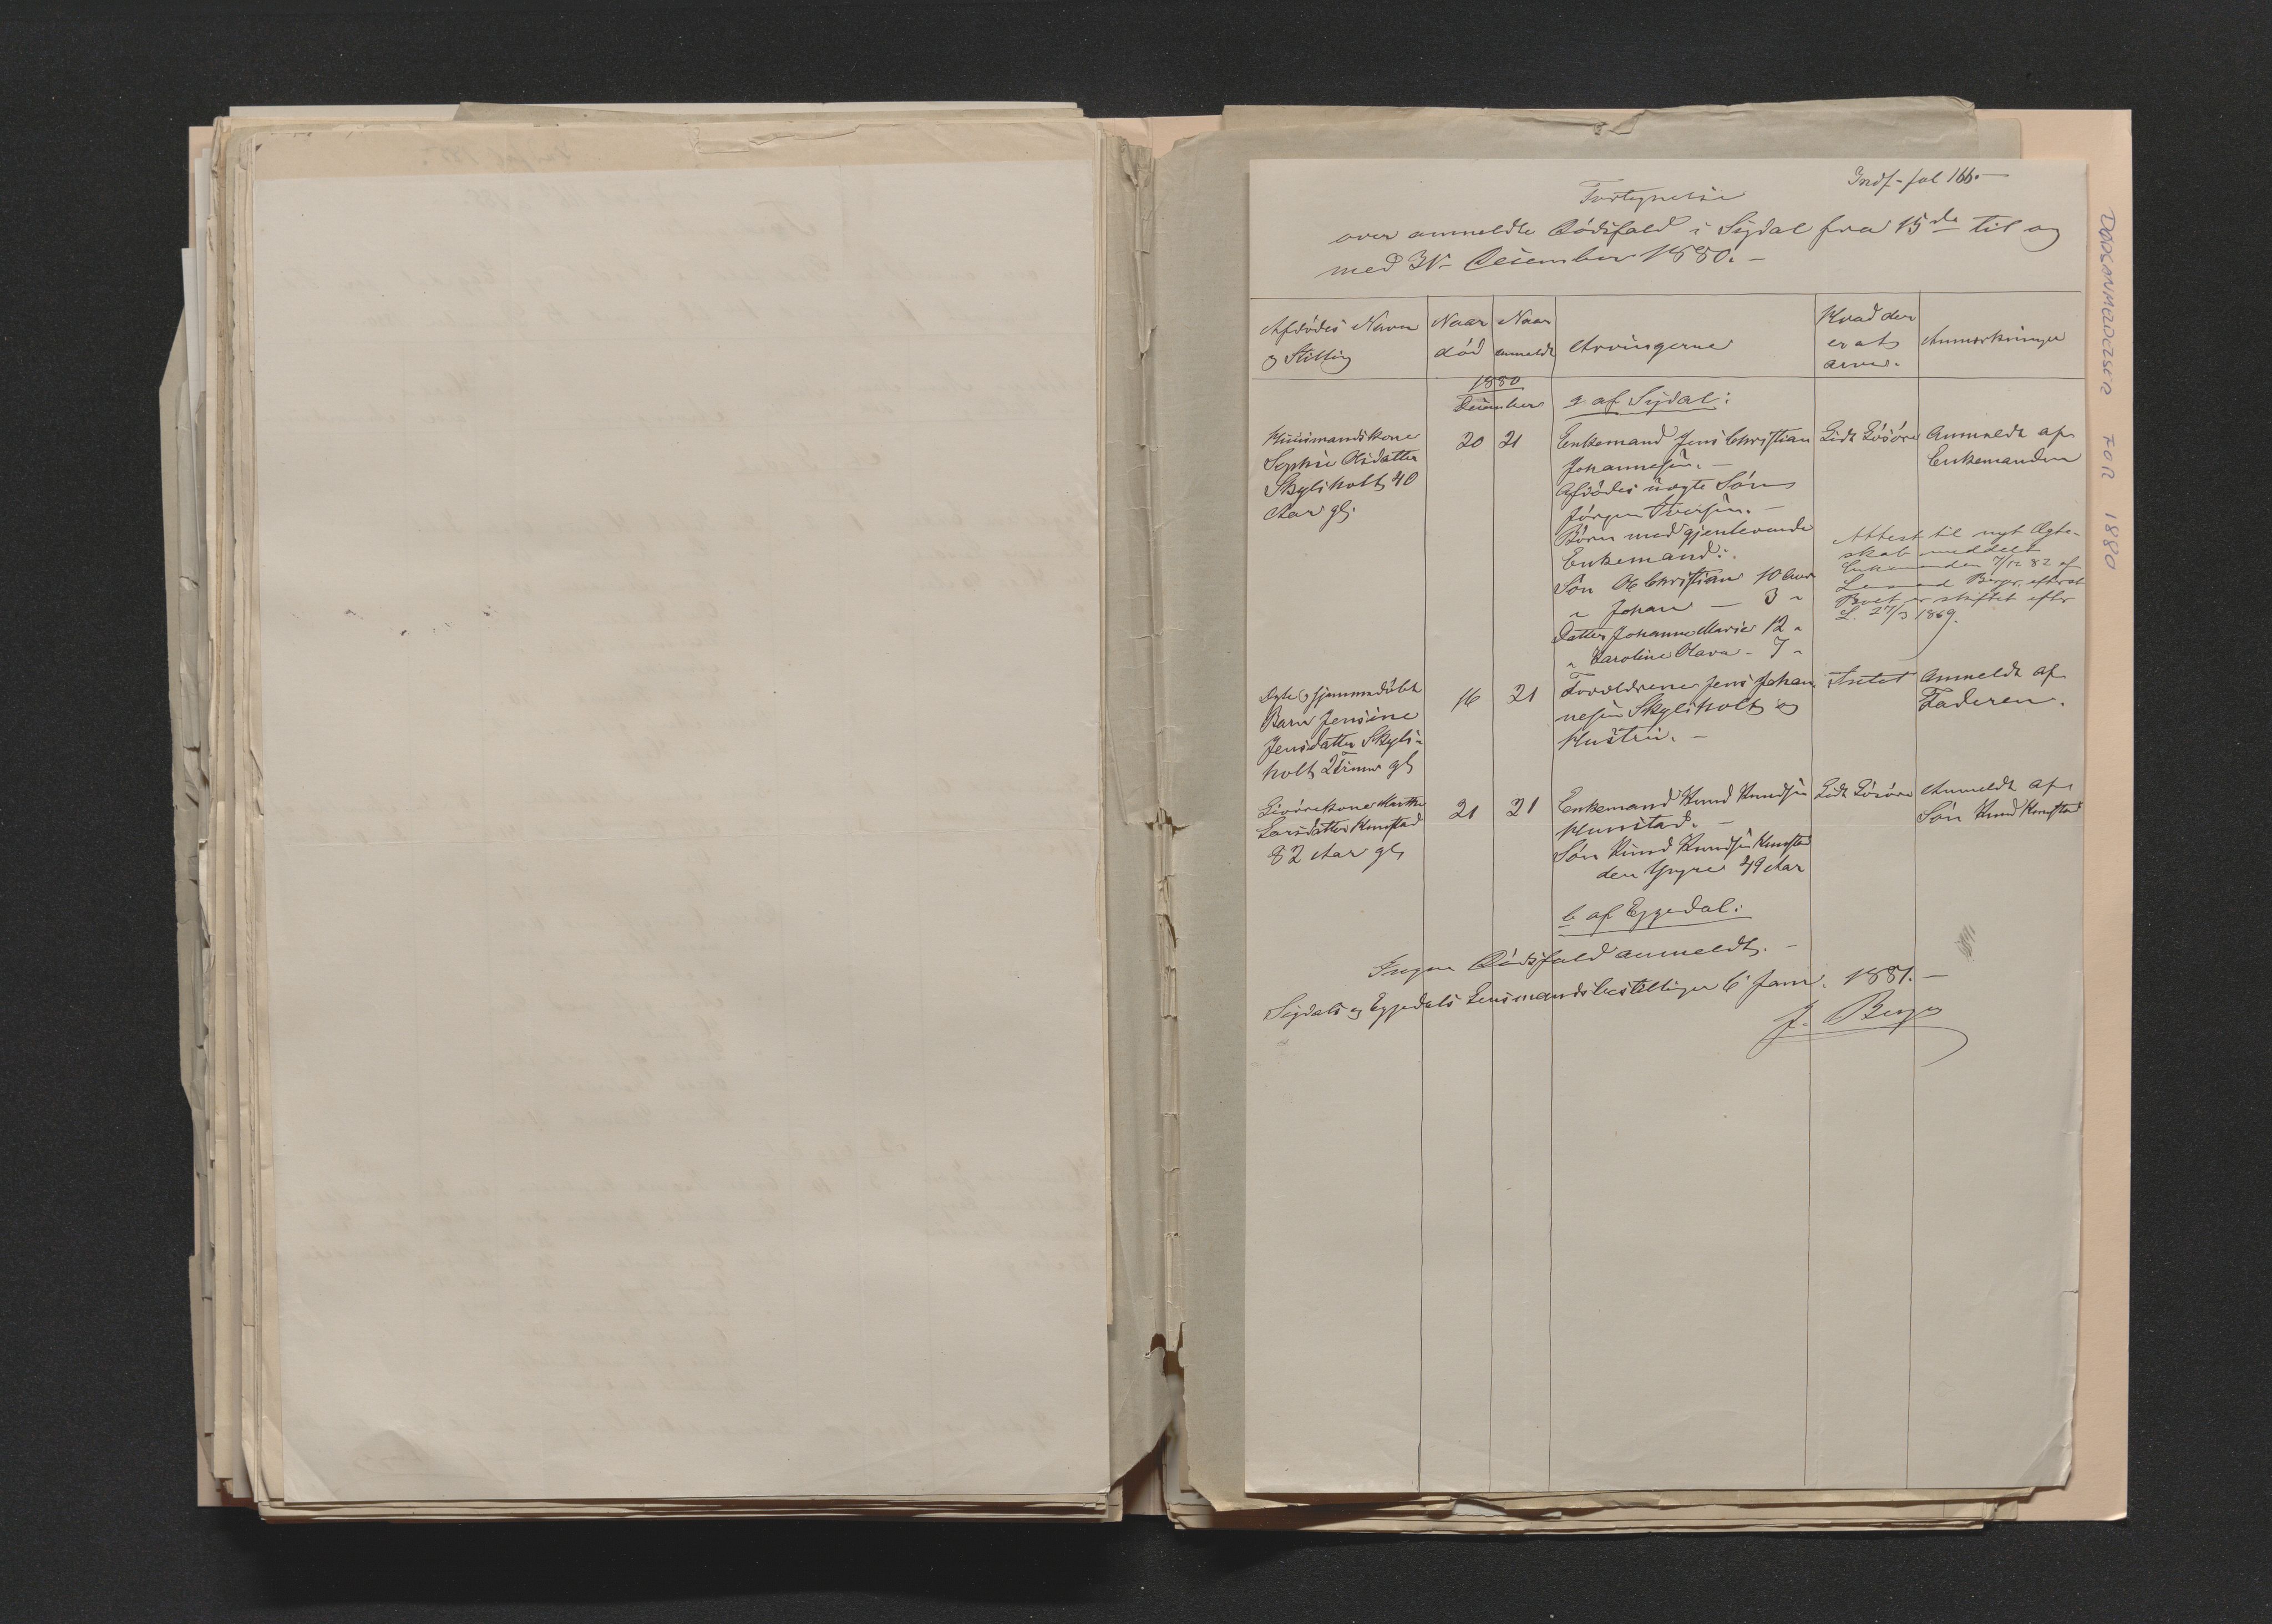 Indf- fol 166.-
Fortegnelse
over anmeldte Dödsfald i Sigdal fra 15de til og
med 31- December 1880.-
Afdödes Navn
og Stilling
Naar
död
Naar
anmeldt
Arvingerne
Hvad der
er at
arve.
Anmærkninger
1880
December
a af Sigdal:
Huusmandskone
Sophie Olsdatter
Skylsholt 40
Aar gl.
20
21
Enkemand Jens Christian
Johannesen.-
Afdödes uægte Sön
Jörgen Iversen.-
Börn med gjenlevende
Enkemand:
Sön Ole Christian 10 Aar
" Johan - 3 "
Datter Johanne Marie 12 "
" Karoline Olava - 7 "
Lidt Lösöre
Anmeldt af
Enkemanden
Attest til nyt Ægte-
skab meddelt
Enkemanden 7/12 82 af
Lensmand Berger, efterat
Boet er skiftet efter
L. 27/3 1869.
Ægte hjemmedöbt
Barn Jensine
Jensdatter Skyls-
holt 2 Timer gl
16
21
Forældrene Jens Johan
nesen Skylsholt og
Hustru.-
Intet
Anmeldt af
Faderen.
Livörekone Marthe
Larsdatter Kunstad
82 Aar gl
21
21
Enkemand Knud Knudsen
Kunstad.-
Sön Knud Knudsen Kunstad
den Yngre 49 Aar
Lidt Lösöre
Anmeldt af
Sön Knud Kunstad
b af Eggedal:
Ingen Dödsfald anmeldt.-
Sigdals og Eggedals Lensmandsbestillinger 6 Janr. 1881.-
J. Berger
DØDSANMELDELSER FOR 1880